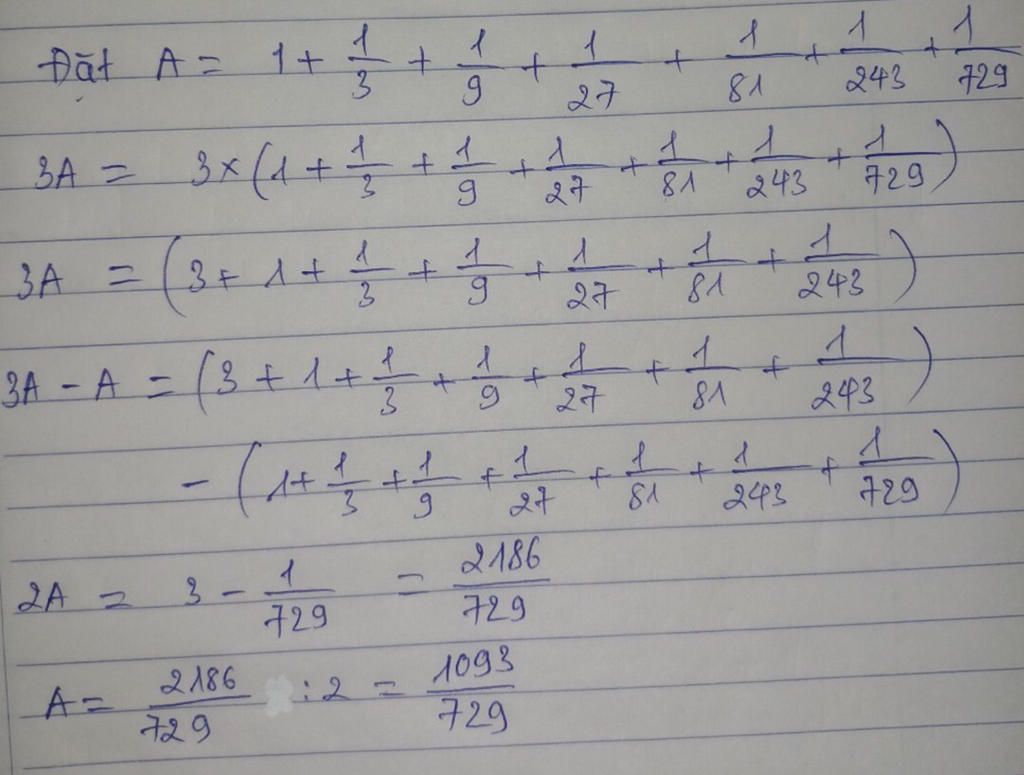 Đặt A = 1 + 1/3 + 1/9 + 1/27 + 1/81 + 1/243 + 1/729
3A = 3 × (1 + 1/3 + 1/9 + 1/27 + 1/81 + 1/243 + 1/729)
3A = (3 + 1 + 1/3 + 1/9 + 1/27 + 1/81 + 1/243)
3A - A = (3 + 1 + 1/3 + 1/9 + 1/27 + 1/81 + 1/243)
- (1 + 1/3 + 1/9 + 1/27 + 1/81 + 1/243 + 1/729)
2A = 3 - 1/729 = 2186/729
A = 2186/729 : 2 = 1093/729